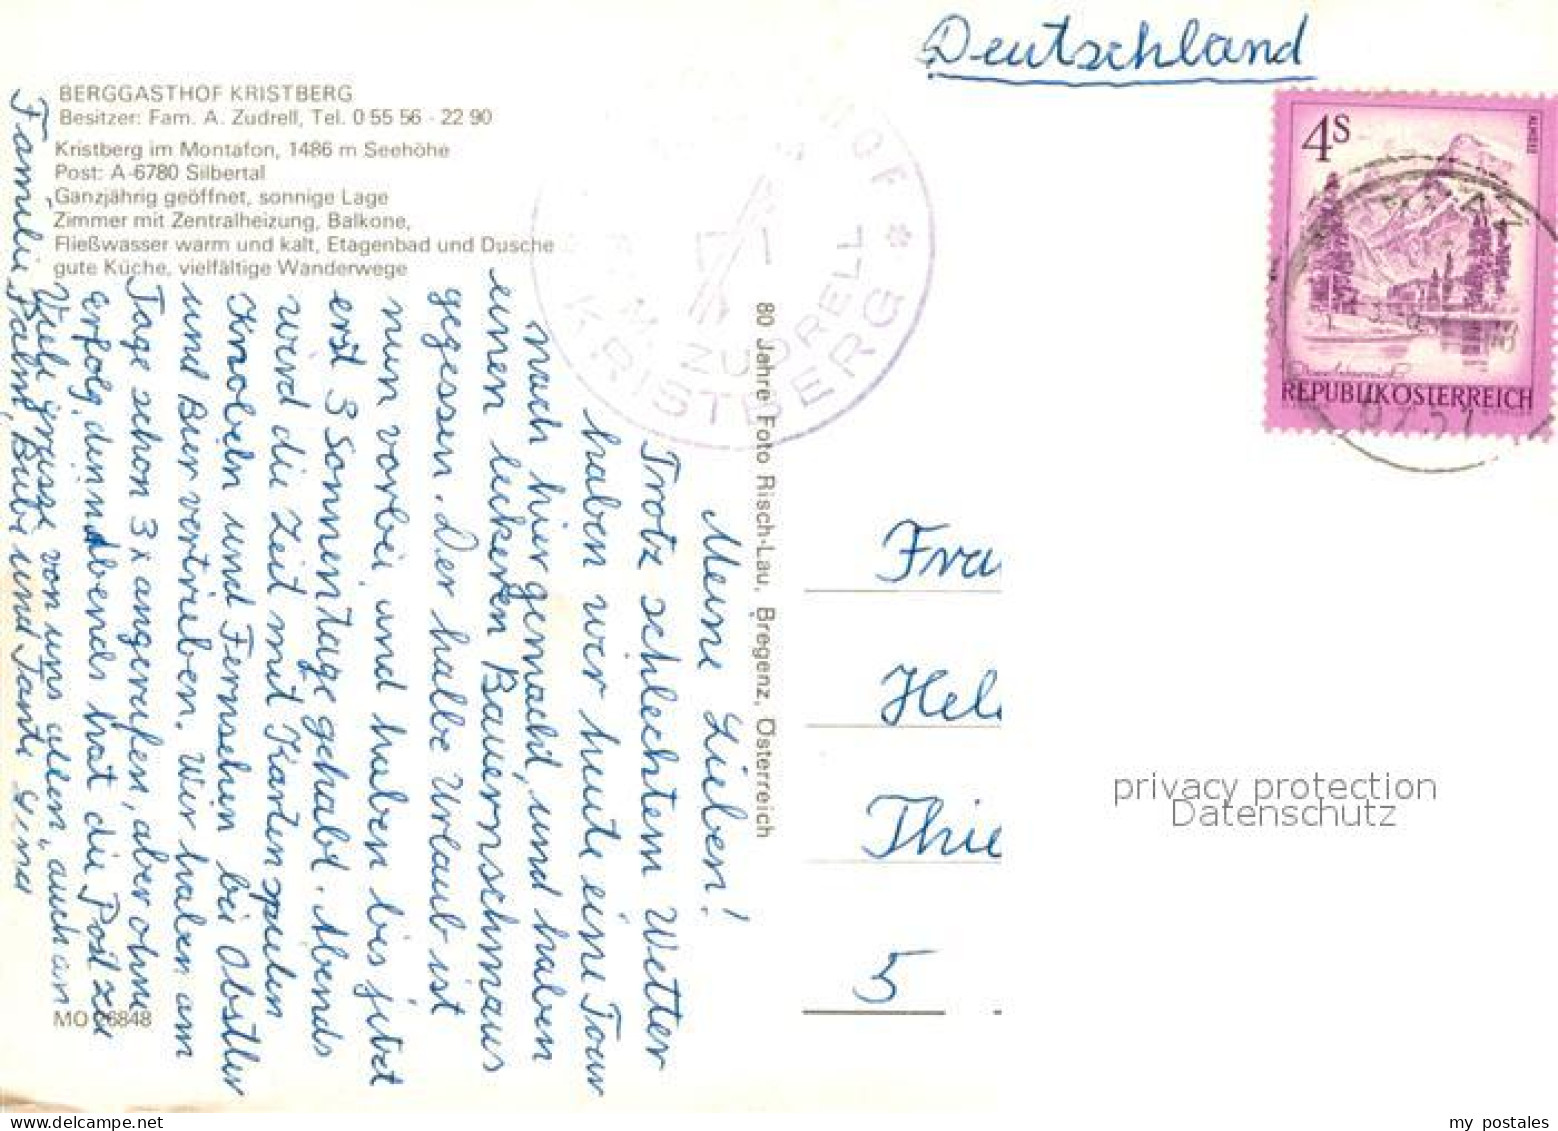 Deutschland
BERGGASTHOF KRISTBERG
Besitzer: Fam. A. Zudrell, Tel. 0 55 56 - 22 90
Kristberg im Montafon, 1486 m Seehöhe
Post: A-6780 Silbertal
Ganzjährig geöffnet, sonnige Lage
Zimmer mit Zentralheizung, Balkone,
Fließwasser warm und kalt, Etagenbad und Dusche
gute Küche, vielfältige Wanderwege
HOF *
ZUDRELL
KRISTBERG
4S
ALMSEE
REPUBLIK ÖSTERREICH
80 Jahre Foto Risch-Lau, Bregenz, Österreich
Meine Lieben!
Trotz schlechtem Wetter
haben wir heute eine Tour
nach hier gemacht, und haben
einen leckeren Bauernschmaus
gegessen. Der halbe Urlaub ist
nun vorbei, und haben bis jetzt
erst 3 Sonnentage gehabt. Abends
wird die Zeit mit Karten spielen
Knobeln und Fernsehen bei Obstler
und Bier vertrieben. Wir haben am
Tage schon 3x angerufen, aber ohne
Erfolg, denn Abends hat die Post zu
Viele grüsse von uns allen, auch an
Familie Palm, Bube und Tante
MO 26848
Fra
Hel
Thie
5
privacy protection
Datenschutz
my postales